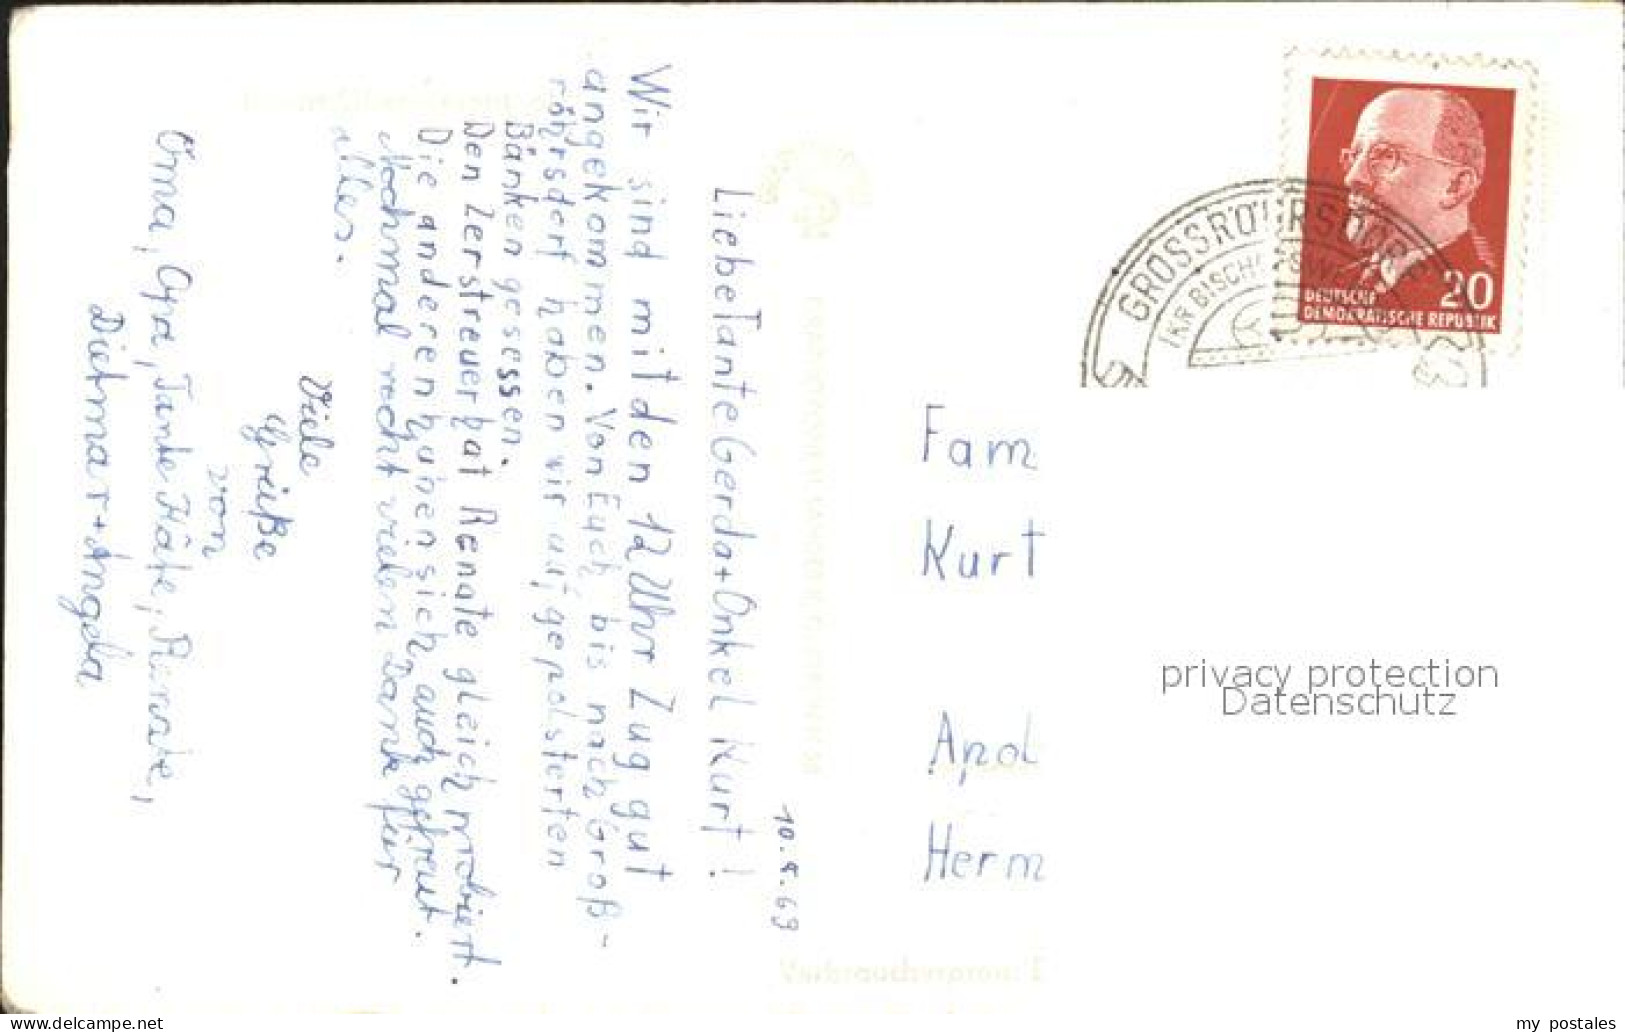 10.4.69
Liebe Tante Gerda + Onkel Kurt!
Wir sind mit den 12 Uhr Zug gut
angekommen. Von Euch bis nach Groß-
röhrsdorf haben wir auf gepolsterten
Bänken gesessen.
Den Zerstreuer hat Renate gleich probiert.
Die anderen haben sich auch gefreut.
Nochmal recht vielen Dank für
alles.
Viele
Grüße
von
Oma, Opa, Tante Käte, Renate,
Dietmar + Angela
GROSSRÖHRSDORF
(KR BISCHOFSW
DEUTSCHE
DEMOKRATISCHE REPUBLIK
20
Fam
Kurt
Apol
Herm
privacy protection
Datenschutz
www.delcampe.net
my_postales